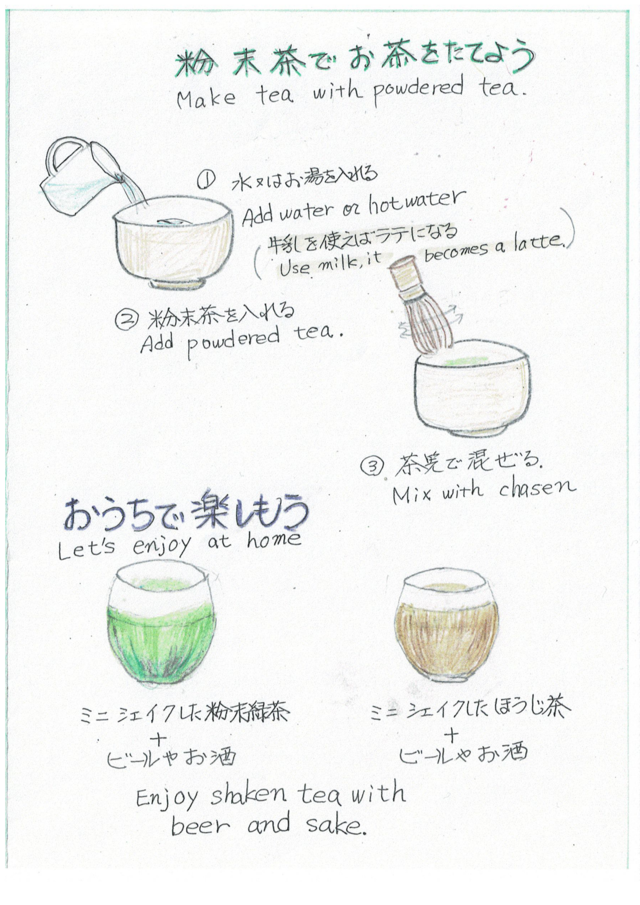 粉末茶でお茶をたてよう
Make tea with powdered tea.
① 水又はお湯を入れる
Add water or hot water
(牛乳を使えばラテになる
Use milk, it becomes a latte.)
② 粉末茶を入れる
Add powdered tea.
③ 茶筅で混ぜる.
Mix with chasen
おうちで楽しもう
Let's enjoy at home
ミニシェイクした粉末緑茶
+
ビールやお酒
ミニシェイクしたほうじ茶
+
ビールやお酒
Enjoy shaken tea with
beer and sake.